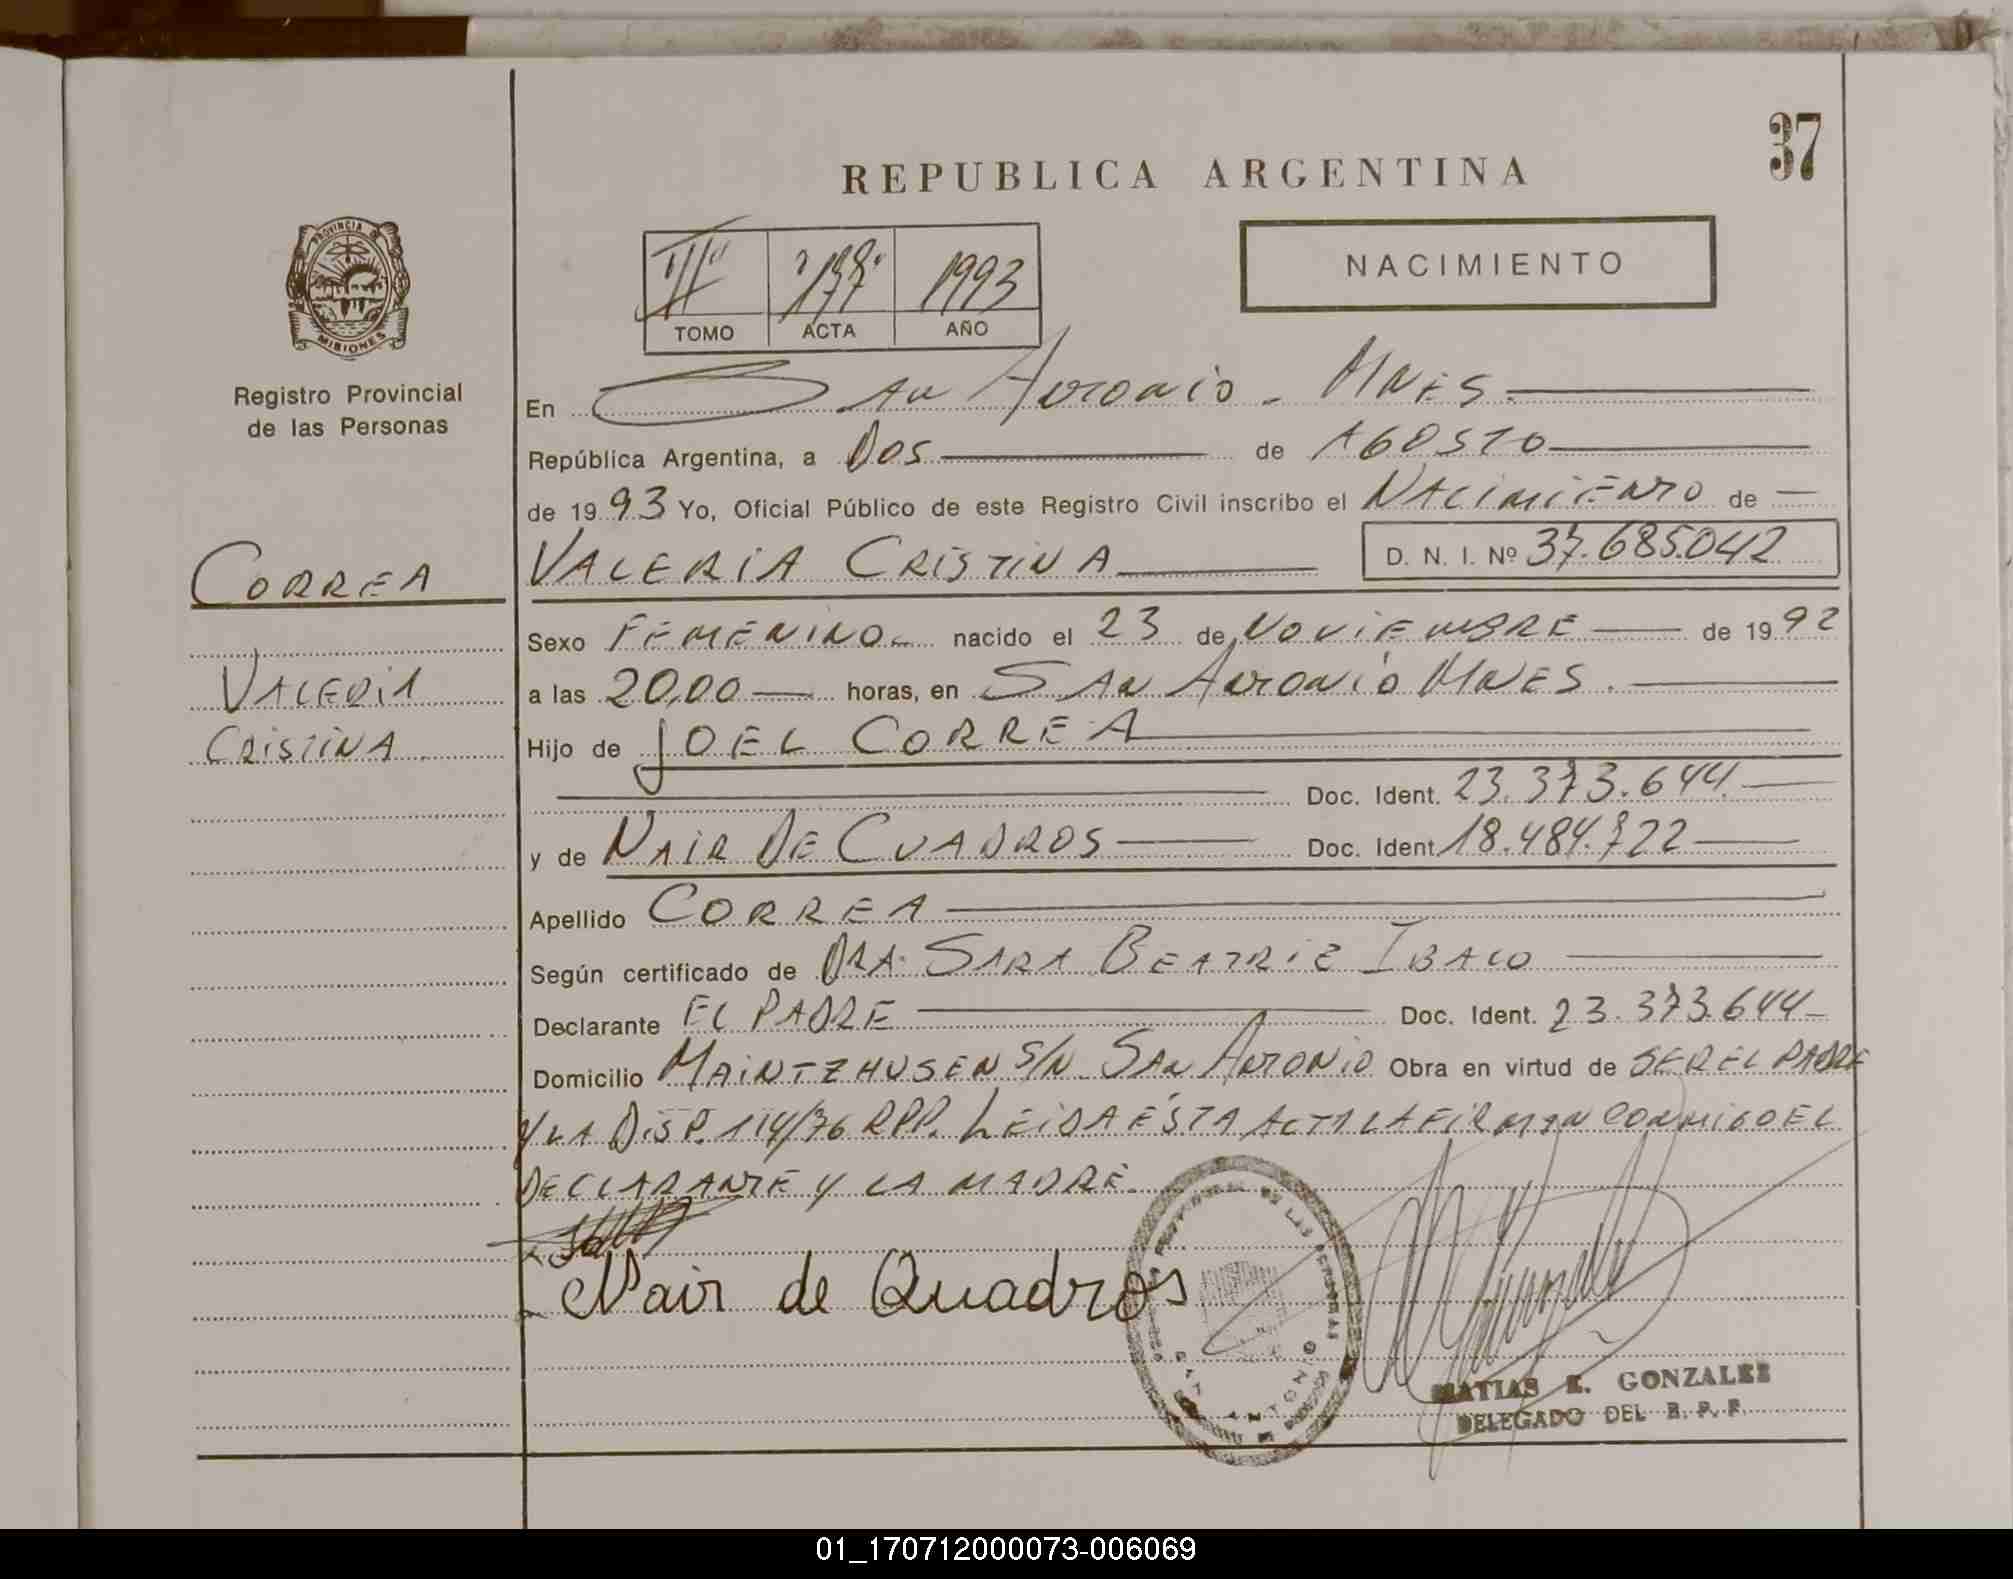 37
REPUBLICA ARGENTINA
NACIMIENTO
PROVINCIA DE
MISIONES
III 177 1993
TOMO ACTA AÑO
Registro Provincial
de las Personas
En San Antonio - Mnes.
República Argentina, a Dos de Agosto
de 1993 Yo, Oficial Público de este Registro Civil inscribo el Nacimiento de
CORREA
VALERIA CRISTINA D. N. I. Nº 37.685.042
Sexo FEMENINO nacido el 23 de NOVIEMBRE de 1992
VALERIA
a las 20,00 horas, en SAN ANTONIO MNES.
CRISTINA
Hijo de JOEL CORREA
Doc. Ident. 23.373.644
y de NAIR DE CUADROS Doc. Ident 18.484.722
Apellido CORREA
Según certificado de DRA. SARA BEATRIZ IBALO
Declarante EL PADRE Doc. Ident. 23.373.644
Domicilio MAINTZHUSEN S/N SAN ANTONIO Obra en virtud de SER EL PADRE
Y LA DISP. 114/76 RPP. LEIDA ÉSTA ACTA LA FIRMAN CONMIGO EL
DECLARANTE Y LA MADRE.
Nair de Quadros
SAN ANTONIO
MATIAS E. GONZALEZ
DELEGADO DEL R. P. P.
01_170712000073-006069